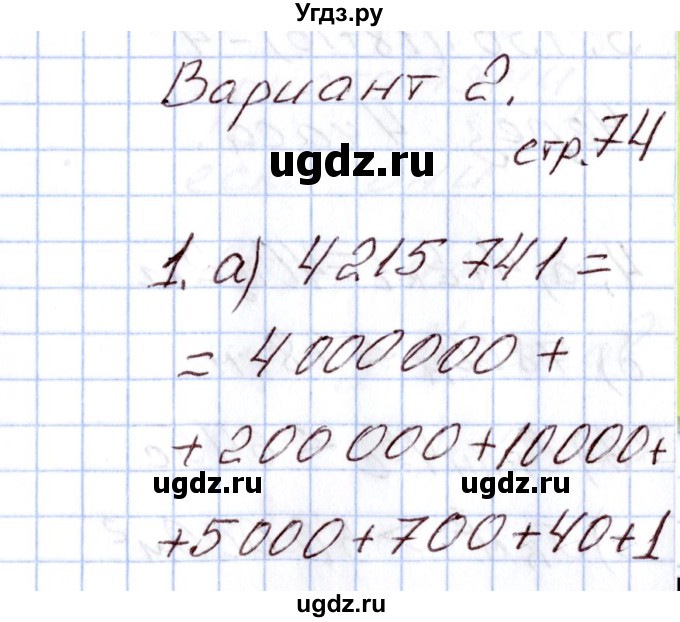 Угдз.ру
Вариант 2.
стр.74
ugdz.ru
1. а) 4215 741 =
= 4 000000 +
+200 000+10000+
ugdz.ru ugdz.ru
+5000+700+40+1
ugdz.ru